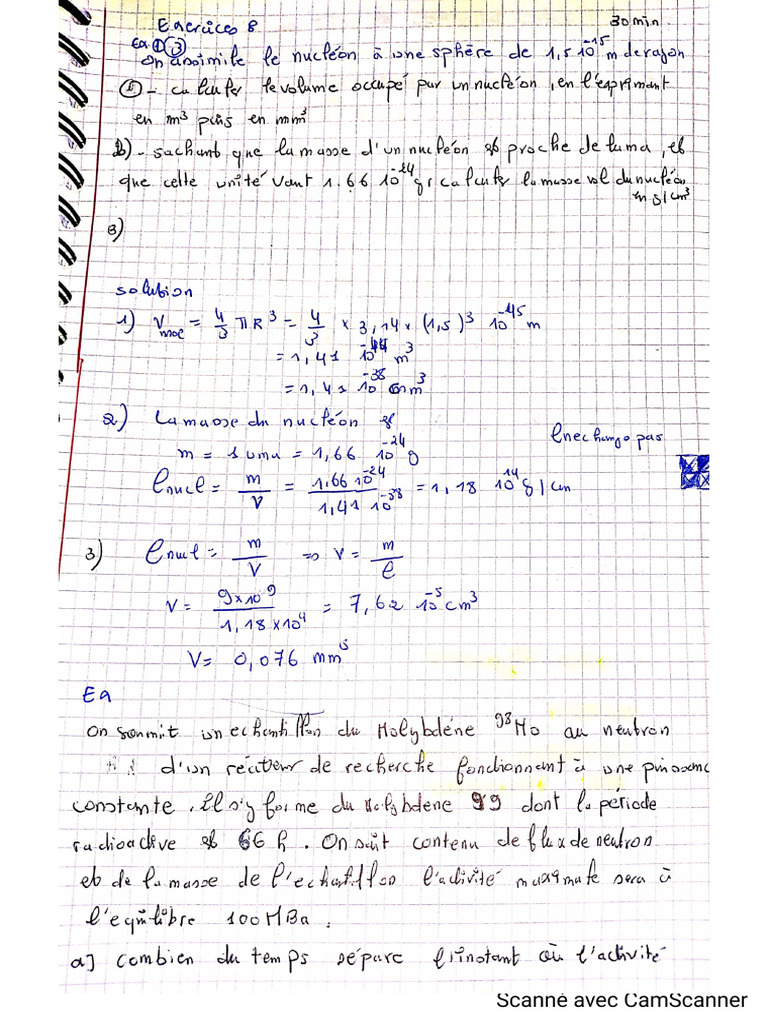 Exercices 8
30 min
Ex ① ③
on assimile le nucléon à une sphère de 1,5 10^-15 m de rayon
① - calculer le volume occupé par un nucléon, en l'exprimant
en m³ puis en mm³
2) - sachant que la masse d'un nucléon est proche de l'uma, et
que cette unité vaut 1.66 10^-24 g, calculer la masse vol du nucléon
en g/cm³
3)
solution
1) V = 4/3 π R³ = 4/3 × 3,14 × (1,5)³ 10^-45 m
= 1,41 10^-44 m³
= 1,41 10^-38 cm³
2) La masse du nucléon est
m = 1 uma = 1,66 10^-24 g
ρ ne change pas
ρnucl = m/V = 1.66 10^-24 / 1,41 10^-38 = 1,18 10^14 g/cm
3) ρnucl = m/V => V = m/ρ
V = 9×10^9 / 1,18×10^4 = 7,62 10^-5 cm³
V = 0,076 mm³
Ex
On soumit un echantillon du Molybdéne 98Mo au neutron
d'un réacteur de recherche fonctionnant à une puissance
constante. Il s'y forme du Molybdene 99 dont la période
radioactive est 66 h. On sait contenu de flux de neutron
et de la masse de l'echantillon l'activité maximale sera à
l'equilibre 100 MBq.
a] combien du temps sépare l'instant où l'activité
Scanné avec CamScanner